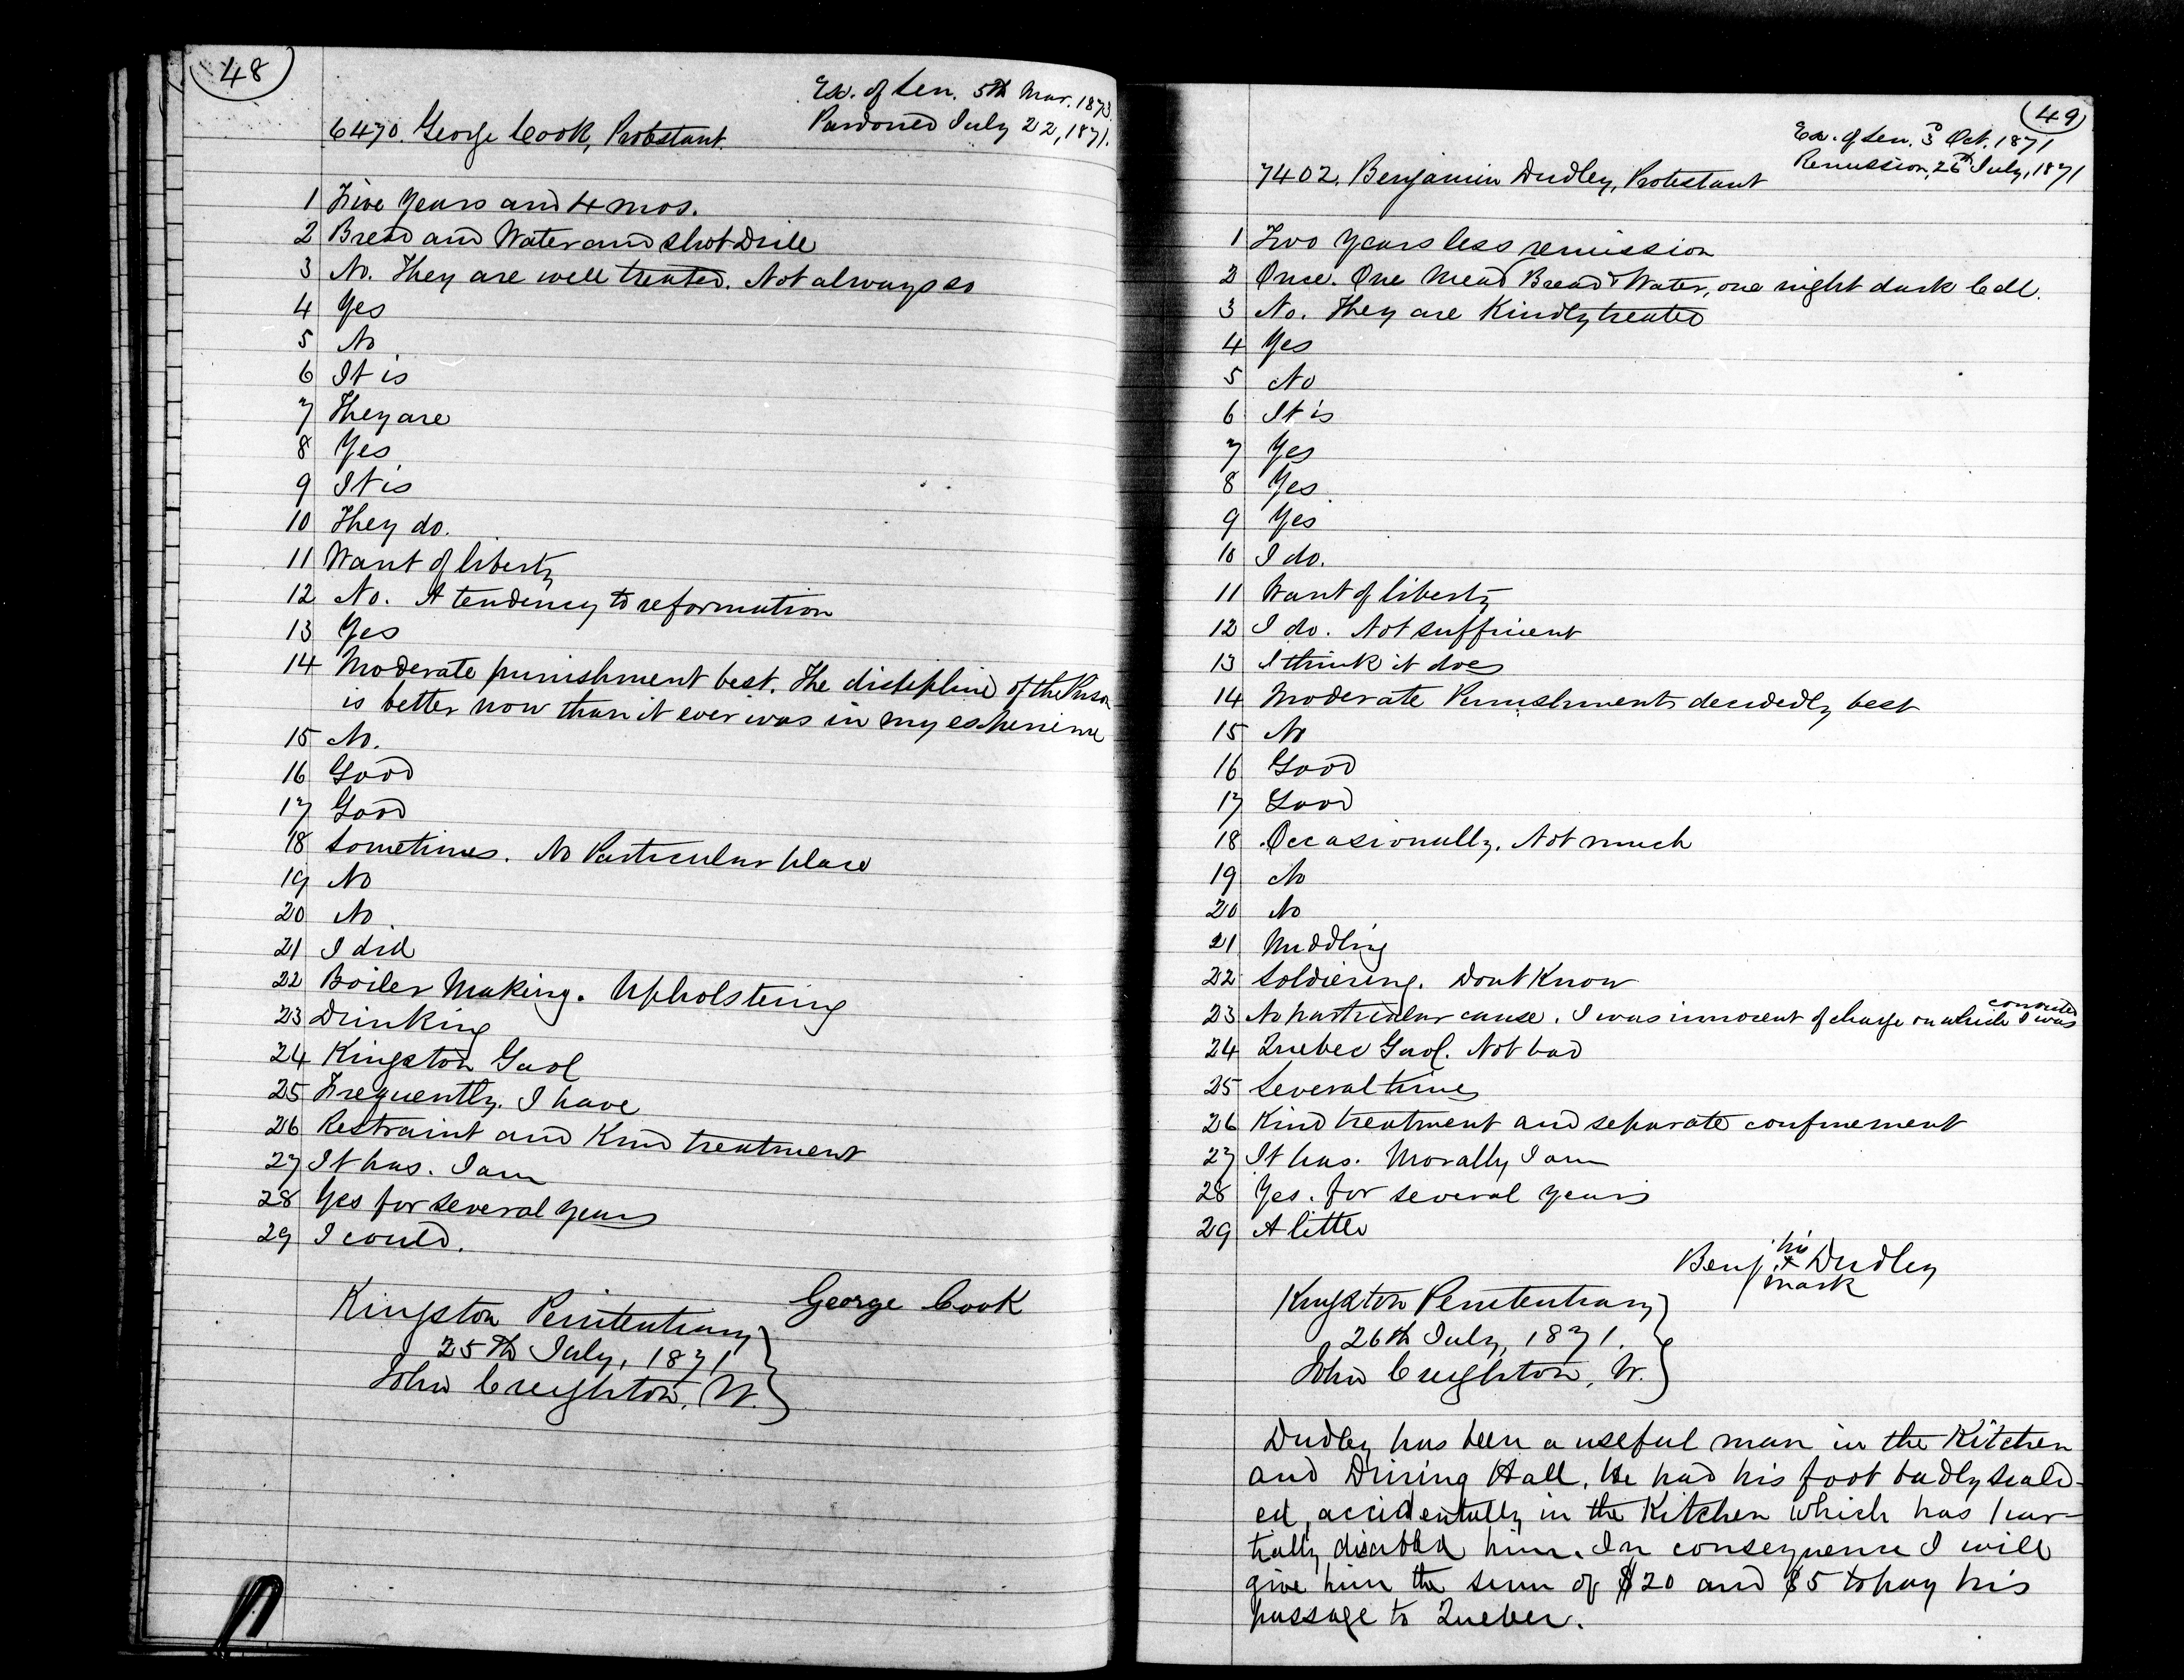 48
Ex. of Sen. 5th Mar. 1873
Pardoned July 22, 1871.
6470. George Cook, Protestant.
1 Five Years and 4 mos.
2 Bread and Water and Shot Drill
3 No. They are well treated. Not always so
4 Yes
5 No
6 It is
7 They are
8 Yes
9 It is
10 They do.
11 Want of liberty
12 No. A tendency to reformation
13 Yes
14 Moderate punishment best. The discipline of the Prison
is better now than it ever was in my experience
15 No.
16 Good
17 Good
18 Sometimes. No Particular place
19 No
20 No
21 I did
22 Boiler Making. Upholstering
23 Drinking
24 Kingston Gaol
25 Frequently. I have
26 Restraint and Kind treatment
27 It has. I am
28 Yes for several years
29 I could.
George Cook
Kingston Penitentiary
25th July, 1871
John Creighton, W.
49
Ex. of Sen. 3d Oct. 1871
Remission, 26th July, 1871
7402. Benjamin Dudley, Protestant
1 Two Years less remission
2 Once. One Meal Bread & Water, one night dark Cell.
3 No. They are Kindly treated
4 Yes
5 No
6 It is
7 Yes
8 Yes
9 Yes
10 I do.
11 Want of liberty
12 I do. Not sufficient
13 I think it does
14 Moderate Punishments decidedly best
15 No
16 Good
17 Good
18 Occasionally. Not much
19 No
20 No
21 Middling
22 Soldiering. Dont Know
23 No particular cause. I was innocent of charge on which I was convicted
24 Quebec Gaol. Not bad
25 Several times
26 Kind treatment and separate confinement
27 It has. Morally I am
28 Yes. for several years
29 A little
his
Benj. + Dudley
mark
Kingston Penitentiary
26th July, 1871.
John Creighton, W.
Dudley has been a useful man in the Kitchen
and Dining Hall. He had his foot badly scald-
ed, accidentally in the Kitchen which has par-
tially disabled him. In consequence I will
give him the sum of $20 and $5 to pay his
passage to Quebec.